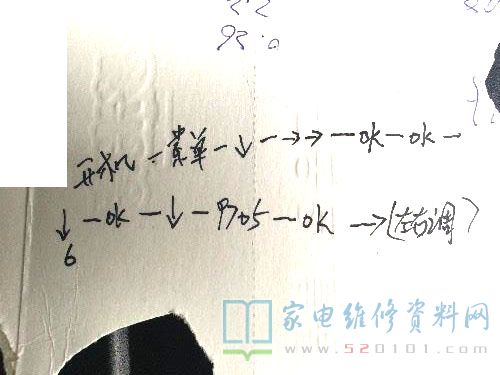 93.0
开机 – 菜单 – ↓ – → → – ok – ok –
↓ – ok – ↓ – 9705 – ok → (左右调)
6
家电维修资料网
www.520101.com